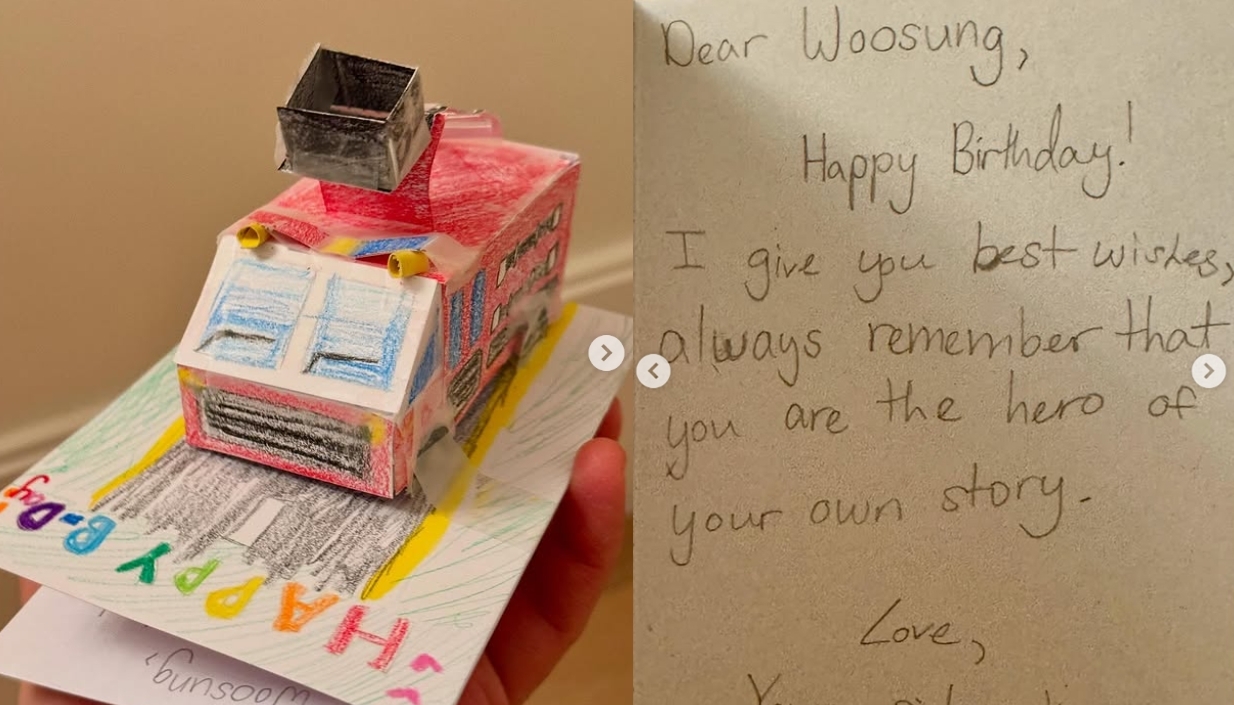 "HAPPY B-Day
Woosung,
Dear Woosung,
Happy Birthday!
I give you best wishes,
always remember that
you are the hero of
your own story.
Love,